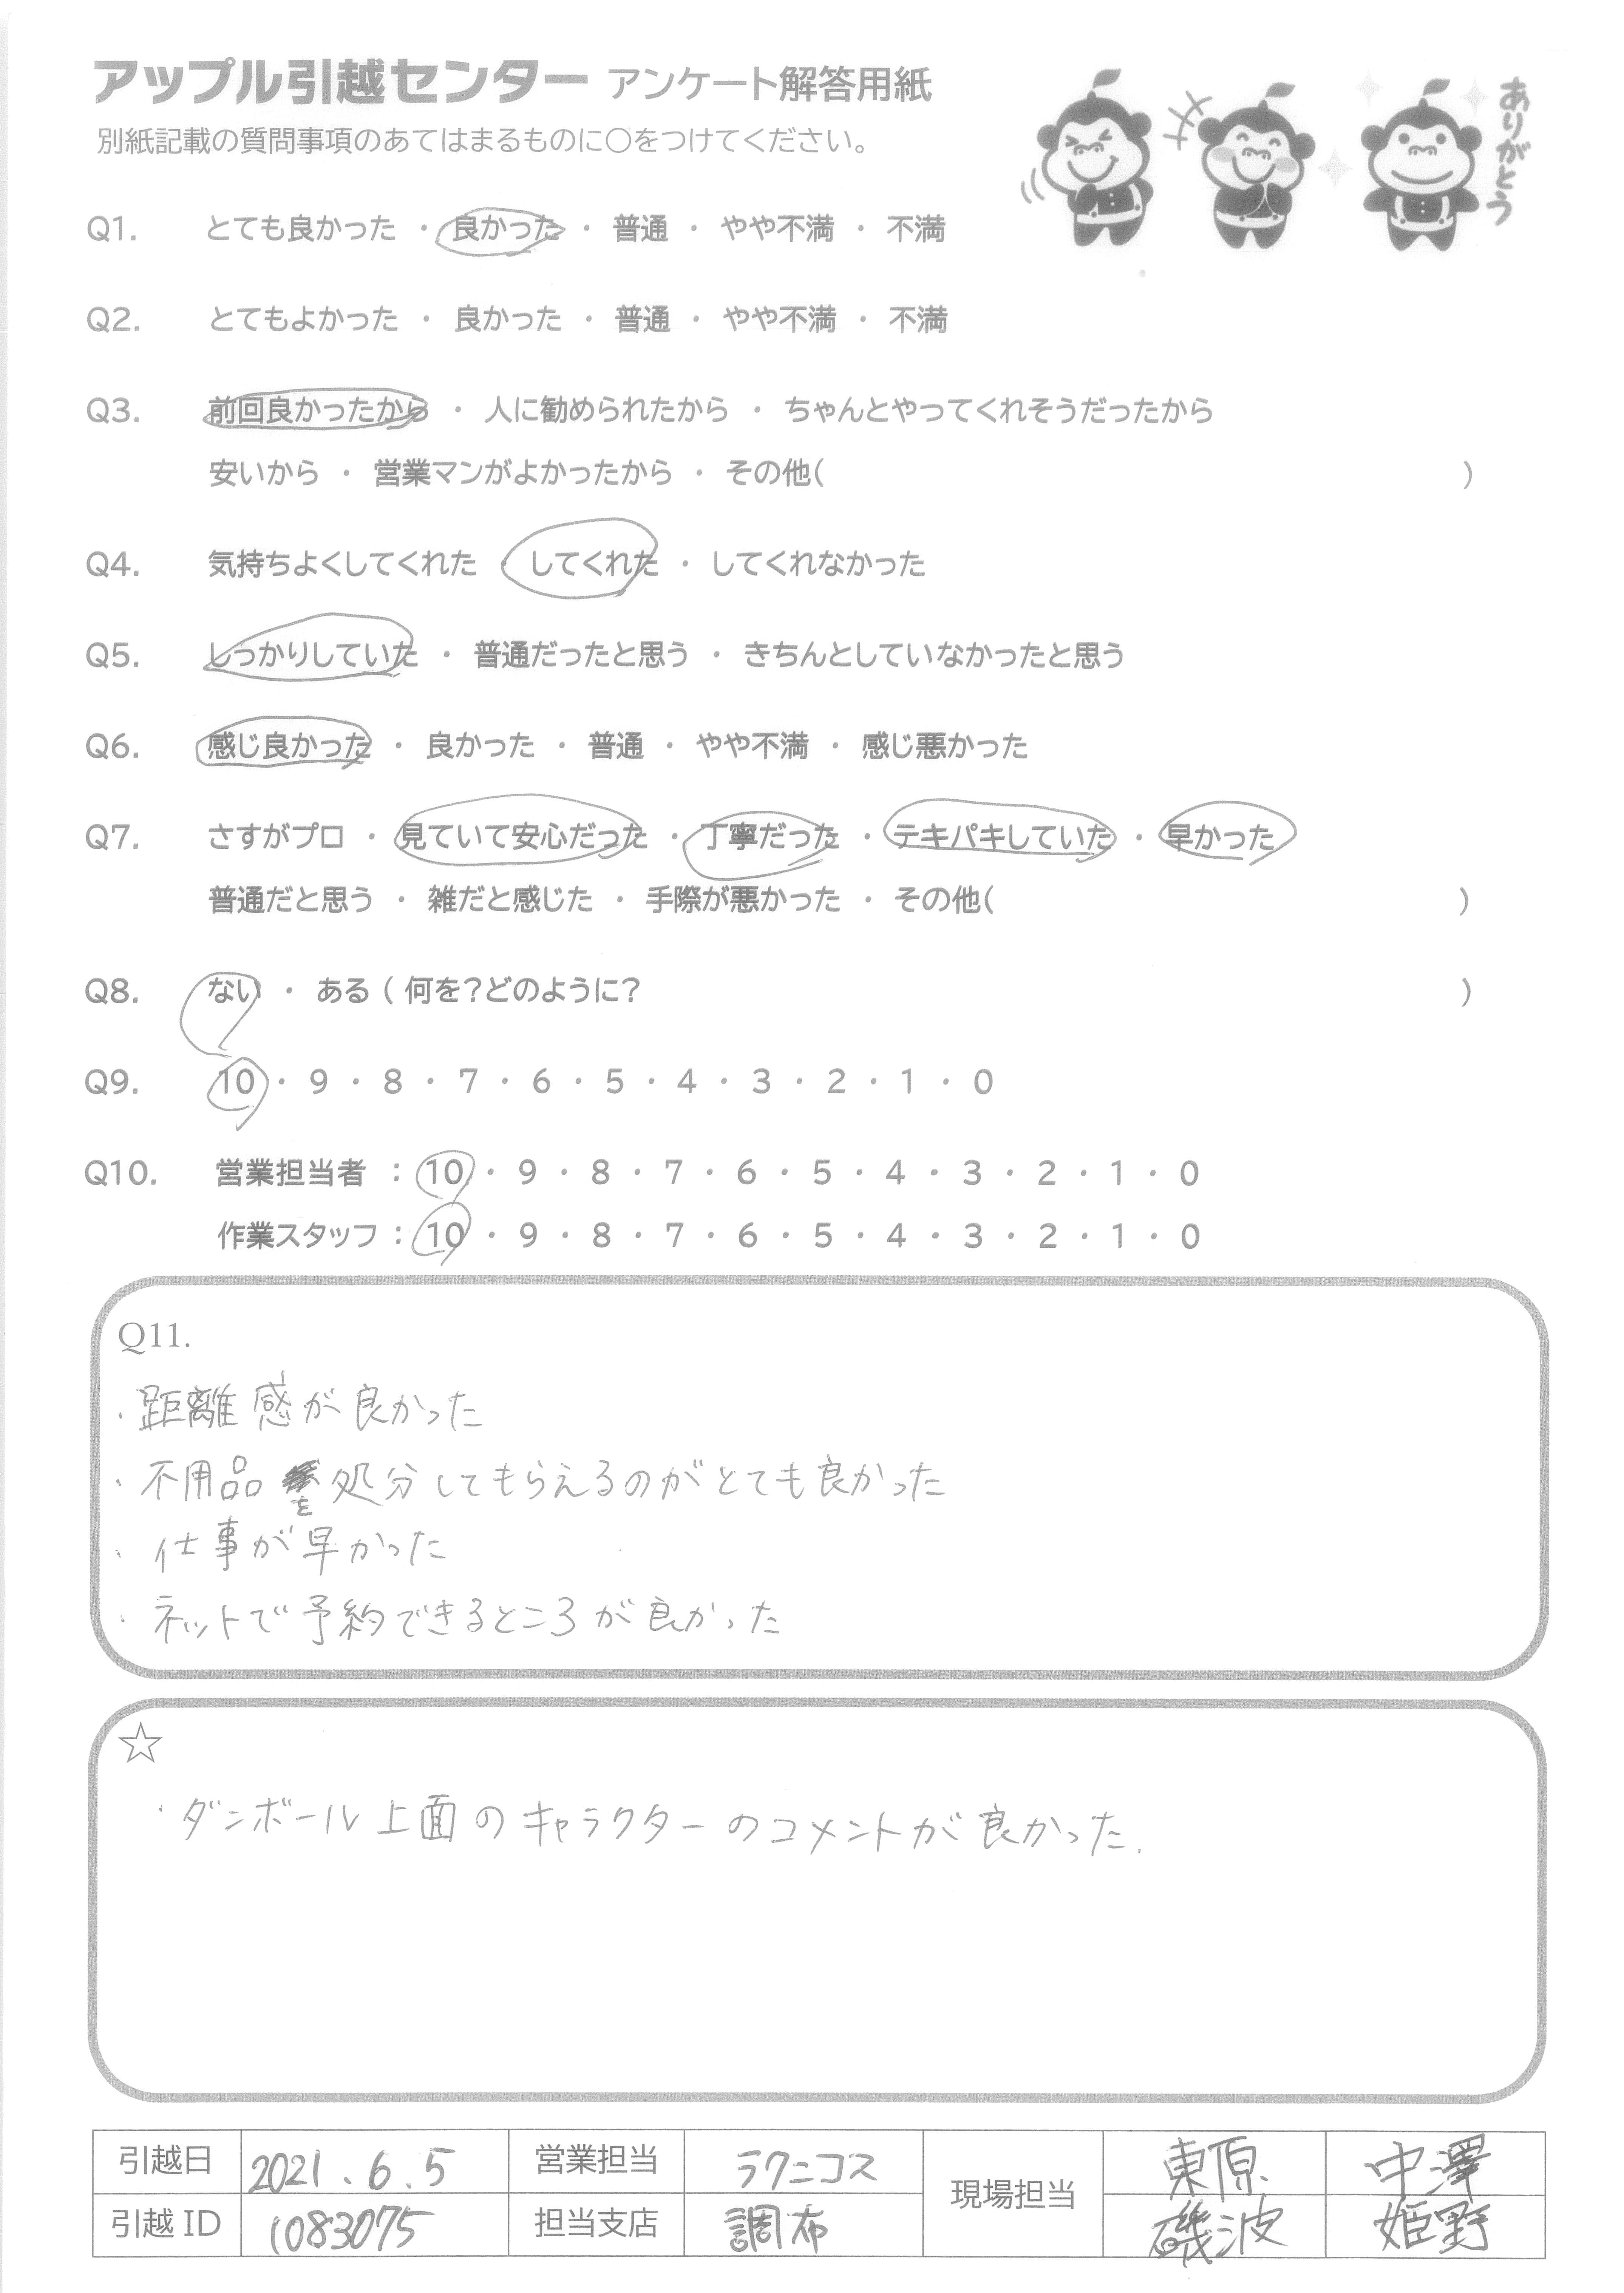 アップル引越センター アンケート解答用紙
別紙記載の質問事項のあてはまるものに○をつけてください。
ありがとう
Q1. とても良かった ・ 良かった ・ 普通 ・ やや不満 ・ 不満
Q2. とてもよかった ・ 良かった ・ 普通 ・ やや不満 ・ 不満
Q3. 前回良かったから ・ 人に勧められたから ・ ちゃんとやってくれそうだったから
安いから ・ 営業マンがよかったから ・ その他( )
Q4. 気持ちよくしてくれた ・ してくれた ・ してくれなかった
Q5. しっかりしていた ・ 普通だったと思う ・ きちんとしていなかったと思う
Q6. 感じ良かった ・ 良かった ・ 普通 ・ やや不満 ・ 感じ悪かった
Q7. さすがプロ ・ 見ていて安心だった ・ 丁寧だった ・ テキパキしていた ・ 早かった
普通だと思う ・ 雑だと感じた ・ 手際が悪かった ・ その他( )
Q8. ない ・ ある ( 何を?どのように? )
Q9. 10 ・ 9 ・ 8 ・ 7 ・ 6 ・ 5 ・ 4 ・ 3 ・ 2 ・ 1 ・ 0
Q10. 営業担当者 : 10 ・ 9 ・ 8 ・ 7 ・ 6 ・ 5 ・ 4 ・ 3 ・ 2 ・ 1 ・ 0
作業スタッフ : 10 ・ 9 ・ 8 ・ 7 ・ 6 ・ 5 ・ 4 ・ 3 ・ 2 ・ 1 ・ 0
Q11.
・距離感が良かった
・不用品を処分してもらえるのがとても良かった
・仕事が早かった
・ネットで予約できるところが良かった
☆
・ダンボール上面のキャラクターのコメントが良かった.
引越日 2021.6.5 営業担当 ラクニコス 現場担当 東原 中澤
引越ID 1083075 担当支店 調布 磯波 姫野